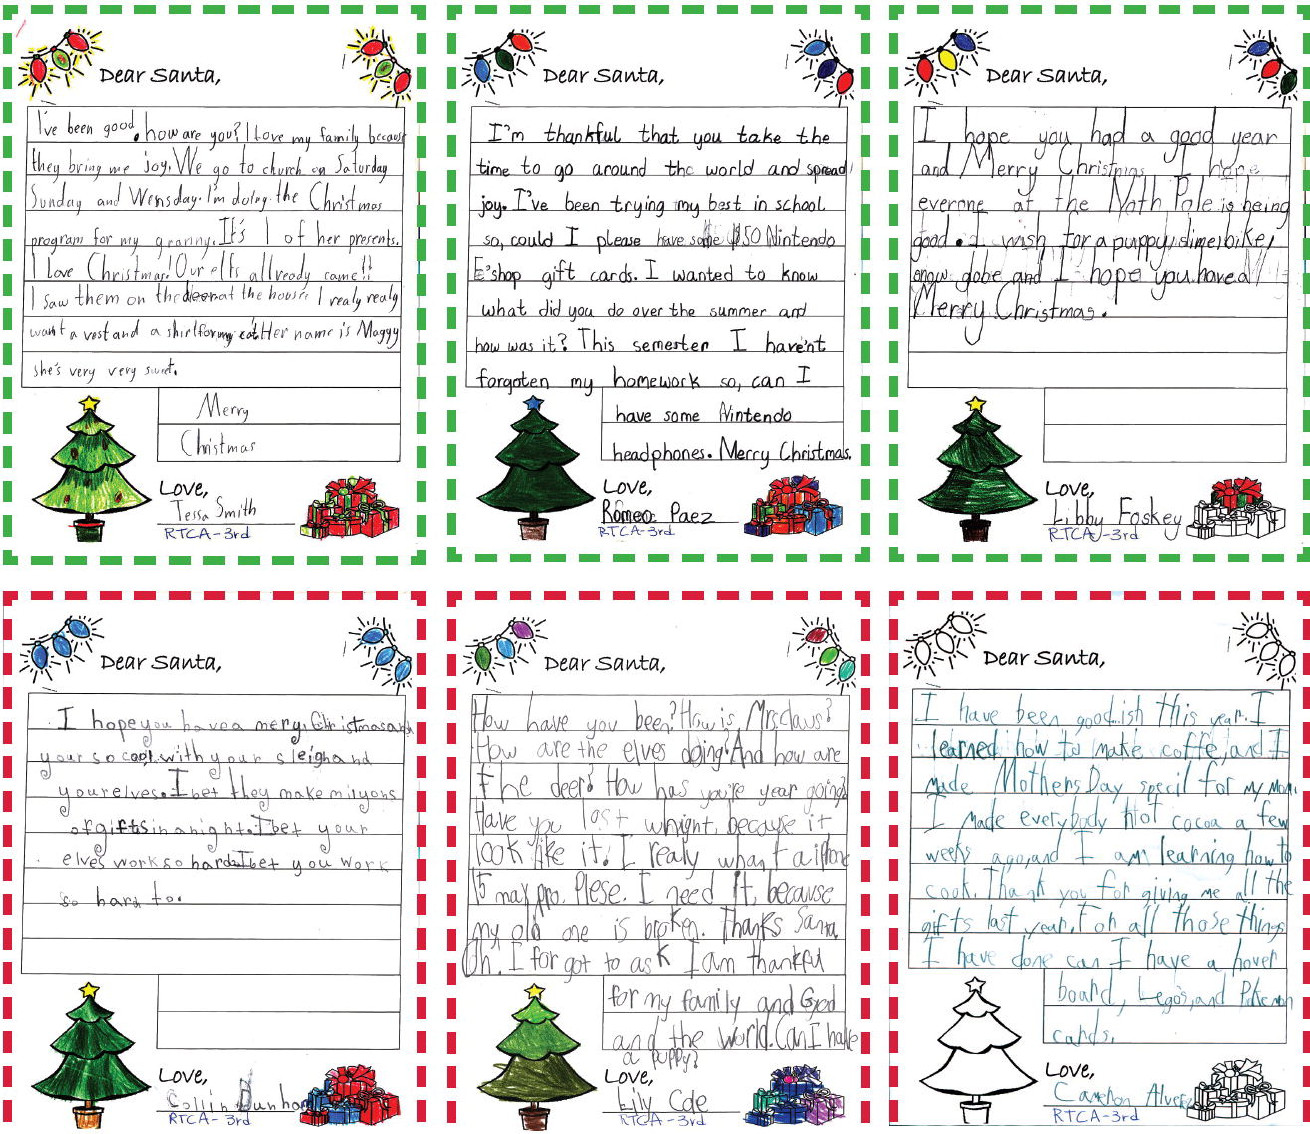 Dear Santa,
I've been good, how are you? I love my family because
they bring me joy. We go to church on Saturday
Sunday and Wensday. I'm doing the Christmas
program for my granny. It's 1 of her presents.
I love Christmas! Our elfs allready came!!
I saw them on the deer at the house I realy realy
want a vest and a shirt for my cat. Her name is Maggy
she's very very sweet.
Merry
Christmas
Love,
Tessa Smith
RTCA-3rd
Dear Santa,
I'm thankful that you take the
time to go around the world and spread
joy. I've been trying my best in school
so, could I please have some $50 Nintendo
E'shop gift cards. I wanted to know
what did you do over the summer and
how was it? This semester I haven't
forgoten my homework so, can I
have some Nintendo
headphones. Merry Christmas.
Love,
Romeo Paez
RTCA-3rd
Dear Santa,
I hope you had a good year
and Merry Christmas I hope
everone at the Noth Pole is being
good. I wish for a puppy, slime, bike,
snow gobe and I hope you have a
Merry Christmas.
Love,
Libby Foskey
RTCA-3rd
Dear Santa,
I hope you have a mery Christmas and
your so cool with your sleigh and
your elves. I bet they make milyons
of gifts in a night. I bet your
elves work so hard I bet you work
so hard to.
Love,
Collin Dunham
RTCA-3rd
Dear Santa,
How have you been? How is Mrs. claus?
How are the elves doing? And how are
the deer? How has you're year going?
Have you lost whight, because it
look like it. I realy whant a iphone
15 max pro. Plese. I need it, because
my old one is broken. Thanks Santa.
Oh. I for got to ask I am thankful
for my family and God
and the world. Can I have
a puppy?
Love,
Lily Cole
RTCA-3rd
Dear Santa,
I have been good.ish this year. I
learned how to make coffe, and I
made Mothers Day specil for my Mom.
I made everybody hot cocoa a few
weeks ago, and I am learning how to
cook. Thank you for giving me all the
gifts last year. For all those things
I have done can I have a hover
board, Lego's, and Pokemon
cards.
Love,
Cameron
RTCA-3rd